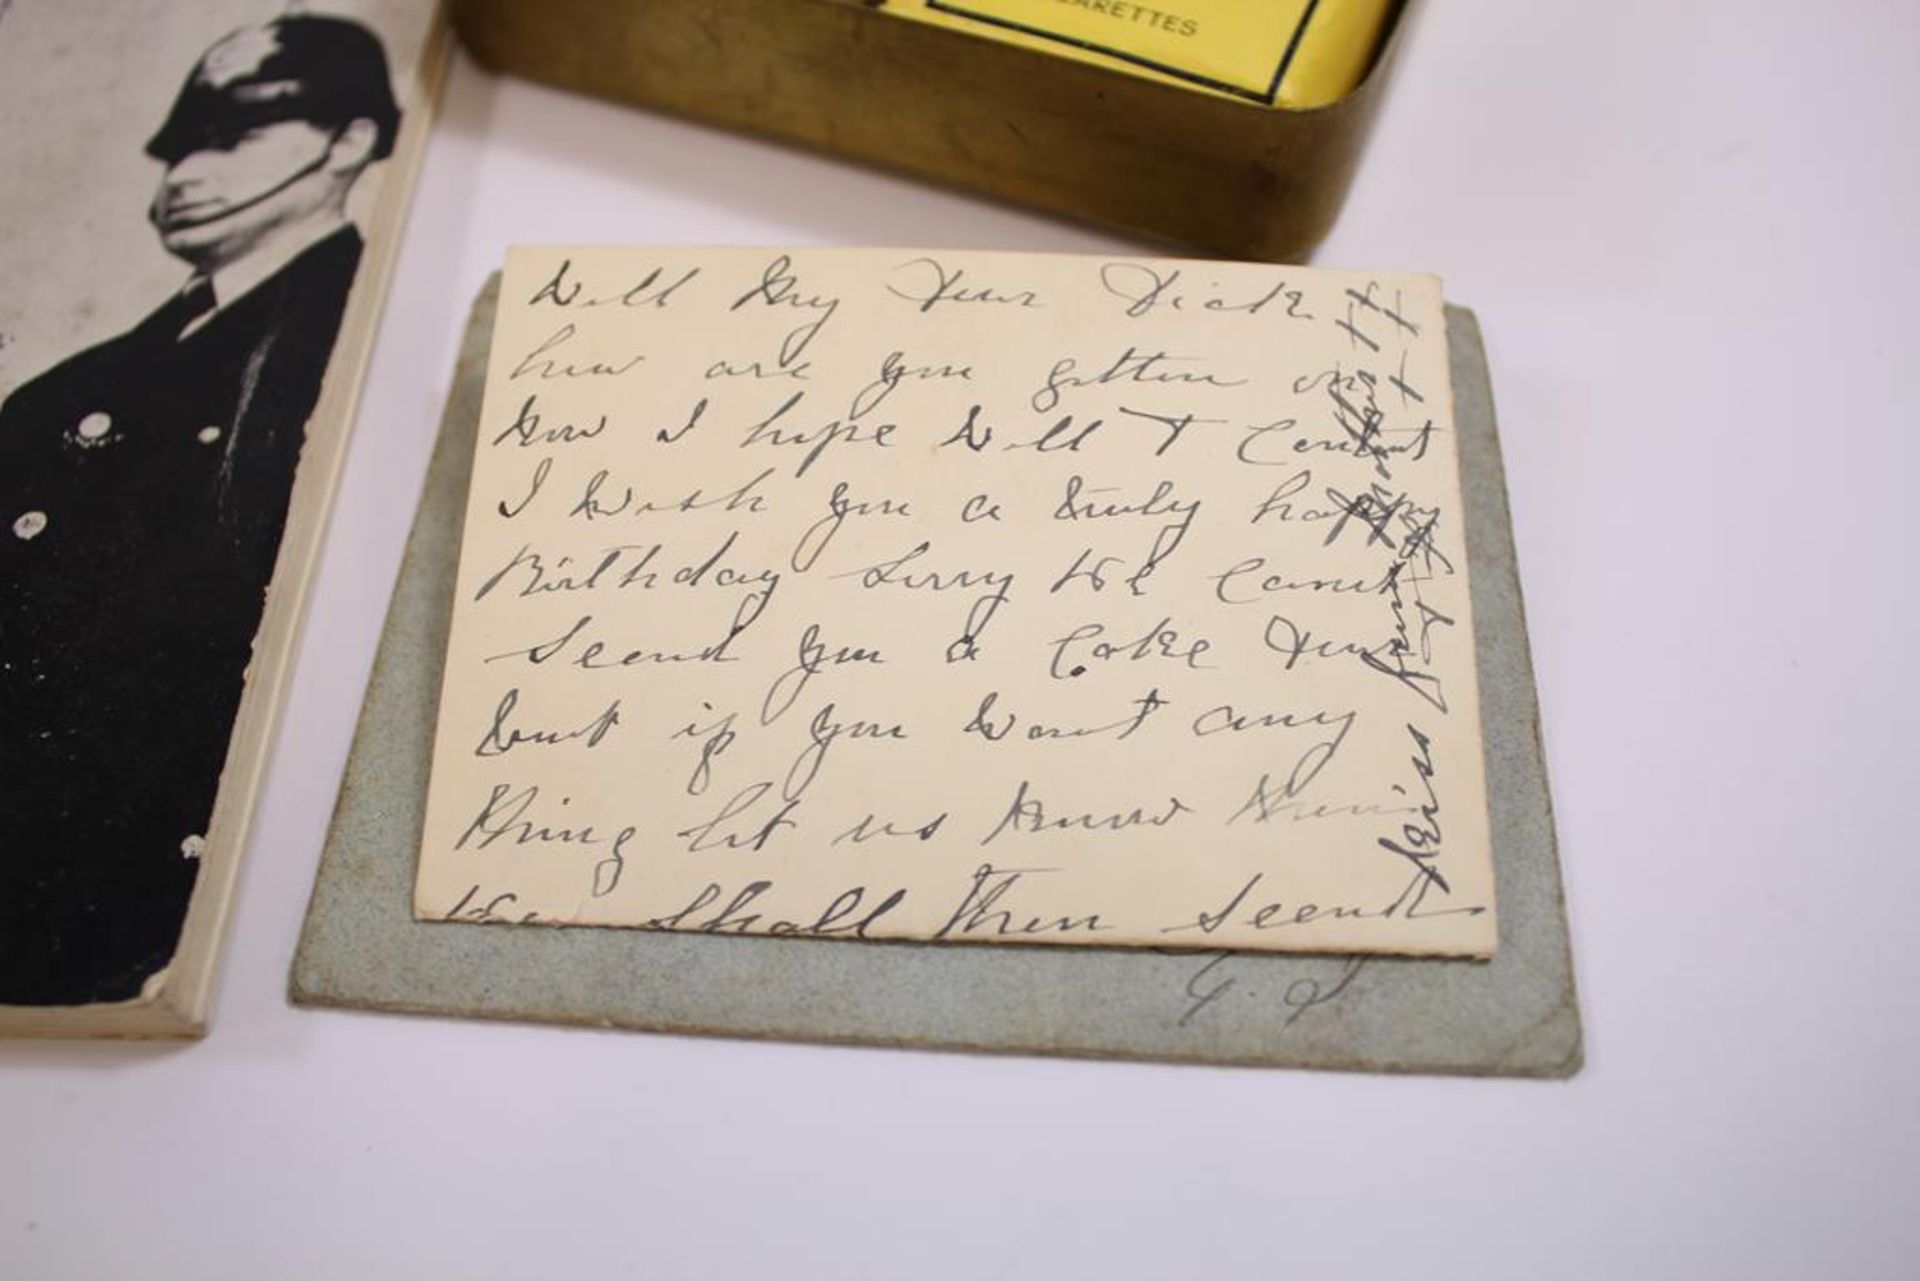 CIGARETTES
Well My Dear Dick
how are you getten on
now I hope Well & Content
I Wish you a truly happy
Birthday Sorry We canot
Seend you a Cake Dear
but if you Want any
thing let us know
We Shall then Seend
Kiss from your Mother
G.